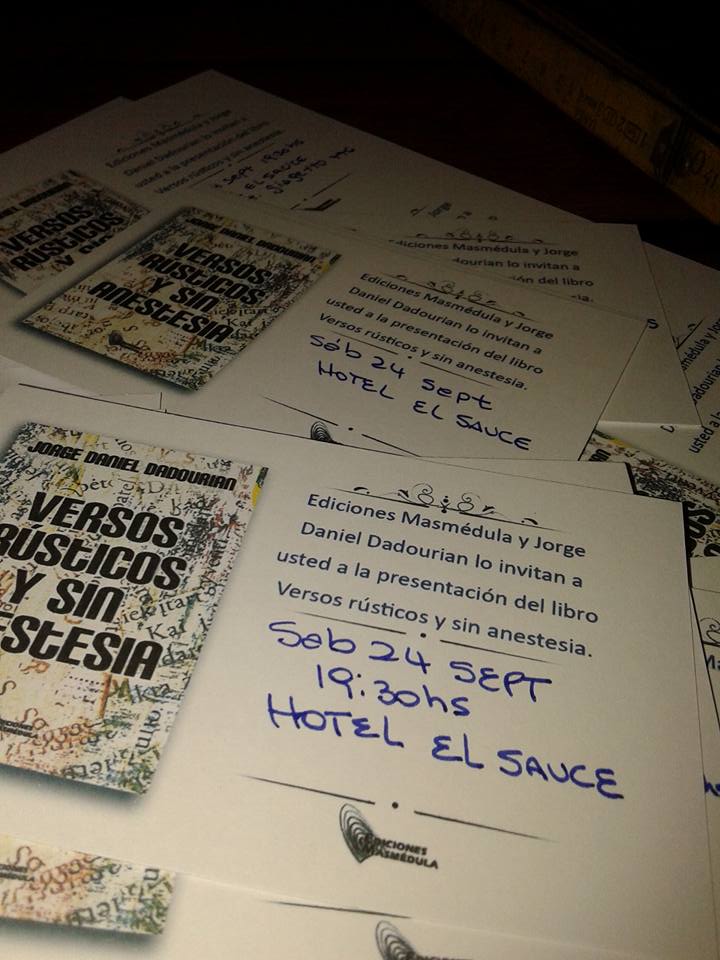 Ediciones Masmédula y Jorge
Daniel Dadourian lo invitan a
usted a la presentación del libro
Versos rústicos y sin anestesia.
SEPT 19:30hs
EL SAUCE
VERSOS
RÚSTICOS
Y
JORGE DANIEL DADOURIAN
VERSOS
RÚSTICOS
Y SIN
ANESTESIA
Ediciones Masmédula y Jorge
dourian lo invitan a
ión del libro
ia.
Ediciones Masmédula y Jorge
Daniel Dadourian lo invitan a
usted a la presentación del libro
Versos rústicos y sin anestesia.
Sáb 24 Sept
HOTEL EL SAUCE
JORGE DANIEL DADOURIAN
VERSOS
RÚSTICOS
Y SIN
ESTESIA
Ediciones Masmédula y Jorge
Daniel Dadourian lo invitan a
usted a la presentación del libro
Versos rústicos y sin anestesia.
Sáb 24 SEPT
19:30hs
HOTEL EL SAUCE
EDICIONES
MASMÉDULA